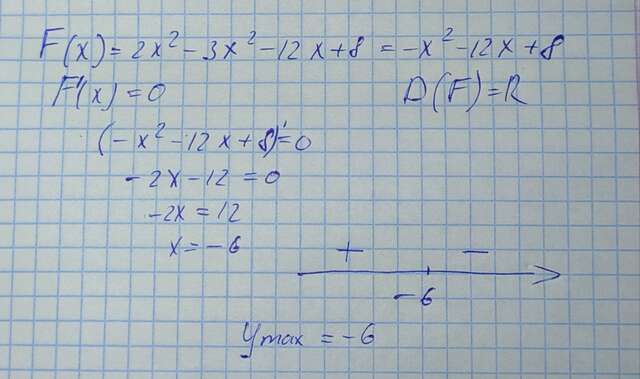 F(x) = 2x² - 3x² - 12x + 8 = -x² - 12x + 8
F'(x) = 0 D(F) = R
(-x² - 12x + 8)' = 0
-2x - 12 = 0
-2x = 12
x = -6
+ -
-6
y max = -6